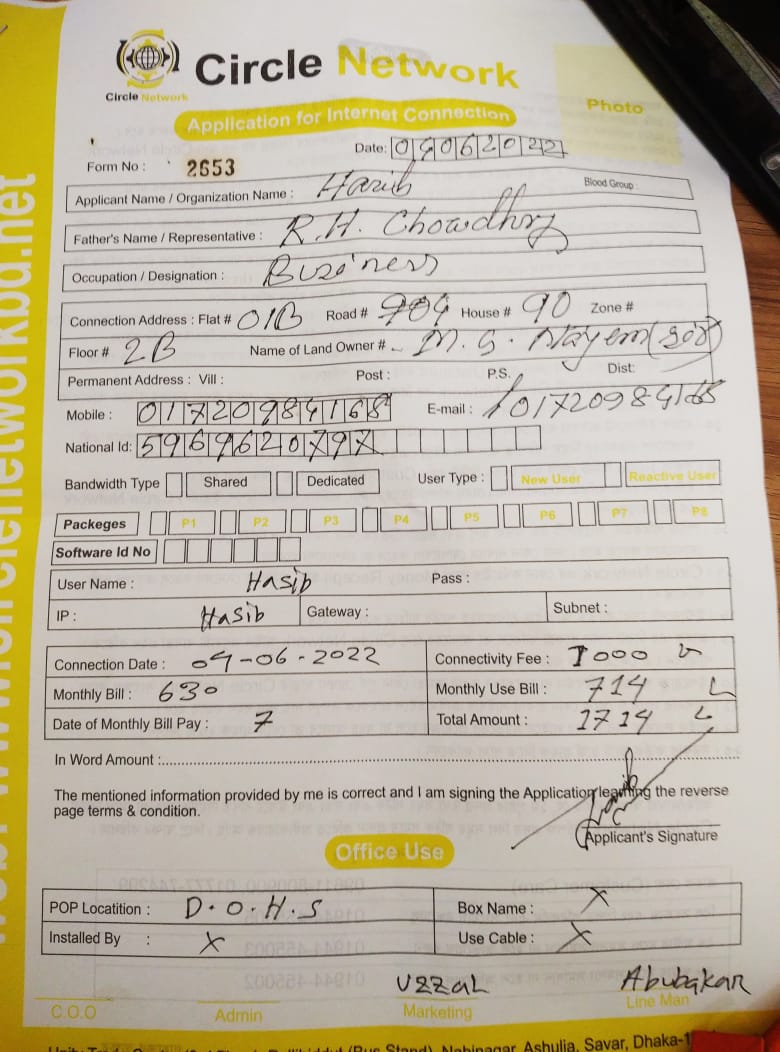 Circle Network
Circle Network
Photo
Application for Internet Connection
Date: 04062022
Form No : 2653
Applicant Name / Organization Name : Hasib Blood Group :
Father's Name / Representative : R.H. Chowdhry
Occupation / Designation : Business
Connection Address : Flat # 01B Road # House # 90 Zone #
Floor # 2B Name of Land Owner # M.S. Nayem
Permanent Address : Vill : Post : P.S. Dist:
Mobile : 01720984168 E-mail : 01720984168
National Id: 5969620797
Bandwidth Type Shared Dedicated User Type : New User Reactive User
Packeges P1 P2 P3 P4 P5 P6 P7 P8
Software Id No
User Name : Hasib Pass :
IP : Hasib Gateway : Subnet :
Connection Date : 04-06-2022 Connectivity Fee : 1000
Monthly Bill : 630 Monthly Use Bill : 714
Date of Monthly Bill Pay : 7 Total Amount : 1714
In Word Amount :
The mentioned information provided by me is correct and I am signing the Application learning the reverse
page terms & condition.
Applicant's Signature
Office Use
POP Locatition : D.O.H.S Box Name : X
Installed By : X Use Cable : X
UZZAL Abubakar
C.O.O Admin Marketing Line Man
(Bus Stand), Nabinagar, Ashulia, Savar, Dhaka-1